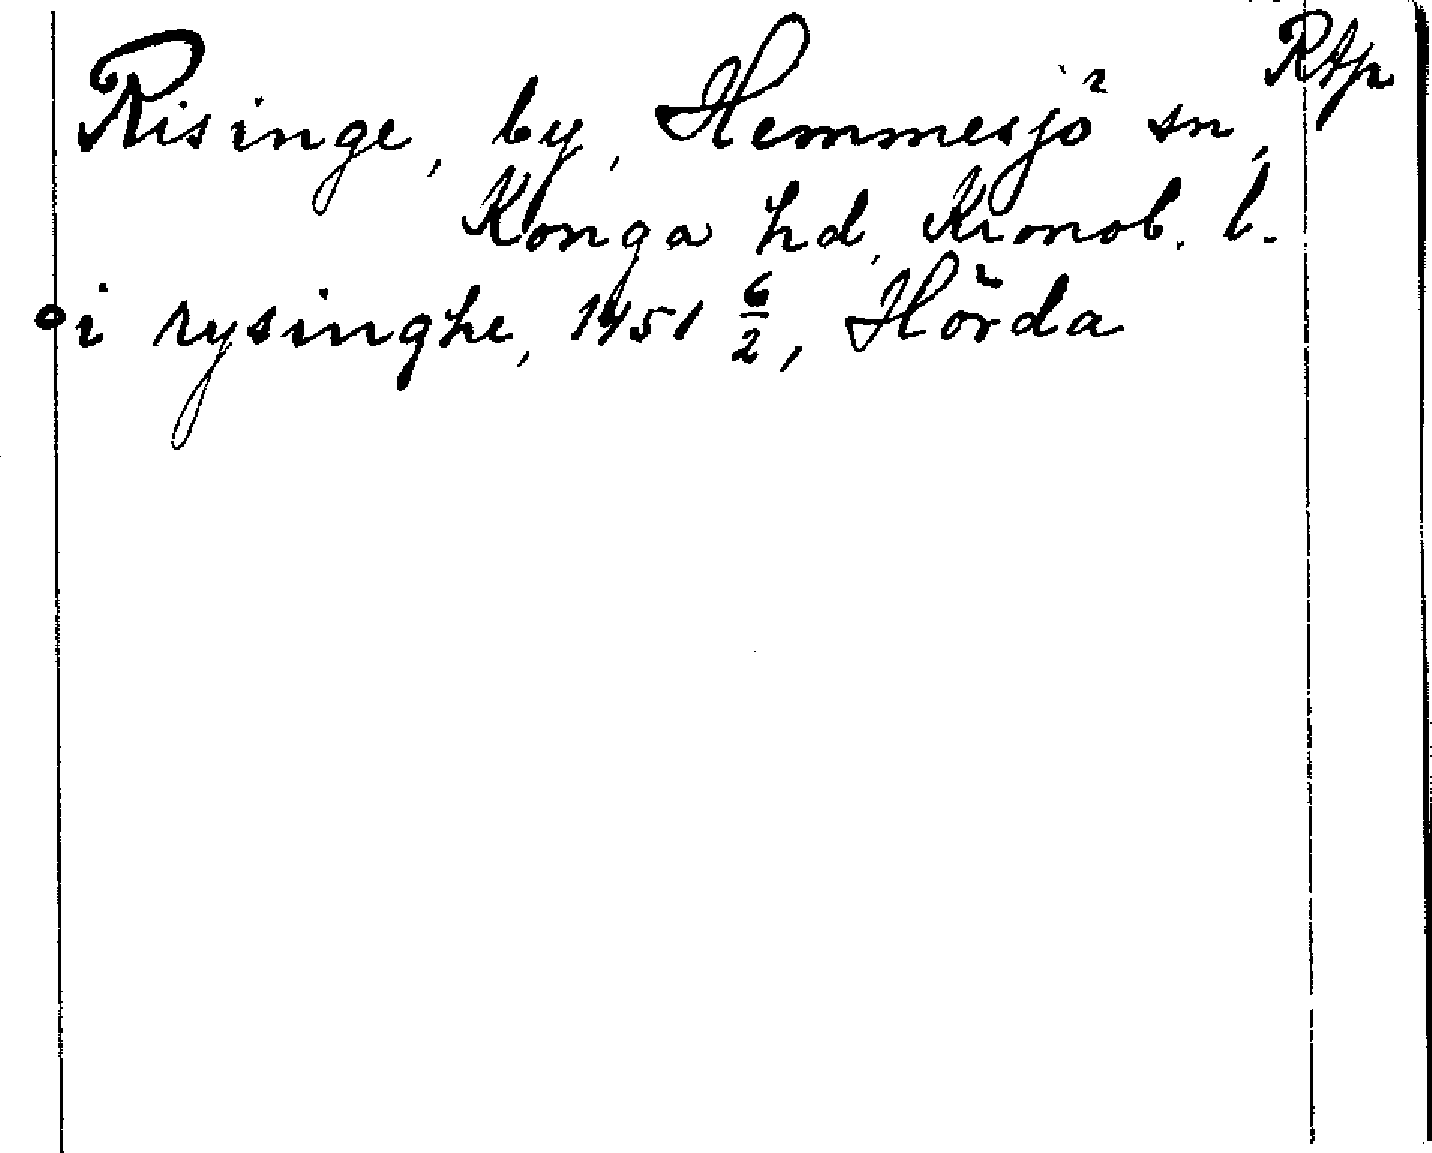 Rtp
Risinge, by, Hemmesjö sn,
Konga hd, Kronob. l.
i rysinghe, 1451 6/2, Hörda